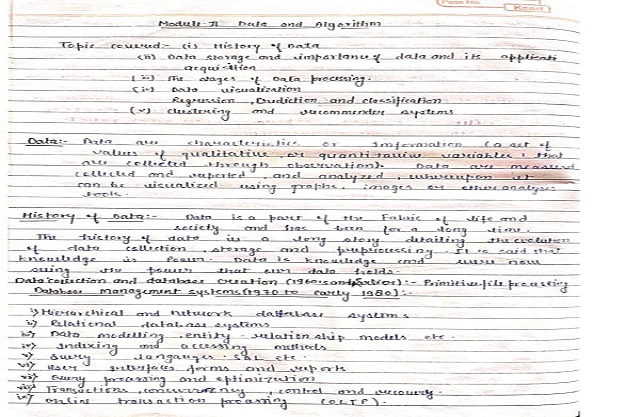 Module-II Data and Algorithm
Topic covered:- (i) History of Data
(ii) Data storage and importance of data and its
acquisition
(iii) The stages of Data processing.
(iv) Data visualization
Regression, Prediction and classification
(v) clustering and recommender systems
Data:- Data are characteristics or Information (a set of
values of qualitative, or quantitative variables, that
are collected through observation). Data are measured
collected and reported, and analyzed, whereupon it
can be visualized using graphs, images or other analysis
tools.
History of Data:- Data is a part of the Fabric of life and
society and has been for a long time.
The history of data is a long story detailing the evolution
of data collection, storage and It is said that
knowledge is Power. Data is knowledge and we're now
the power that our data holds.
Data collection and database creation :- Primitive file processing
Database management systems (1970 to early 1980):-
i) Hierarchical and Network database systems
ii) Relational database systems
iii) Data modelling, entity-relationship models etc.
iv) Indexing and accessing methods
v) Query etc.
vi) User Interfaces, forms and reports
vii) Query and optimization
viii) Transactions, concurrency, control and recovery.
ix) Online transaction (OLTP).